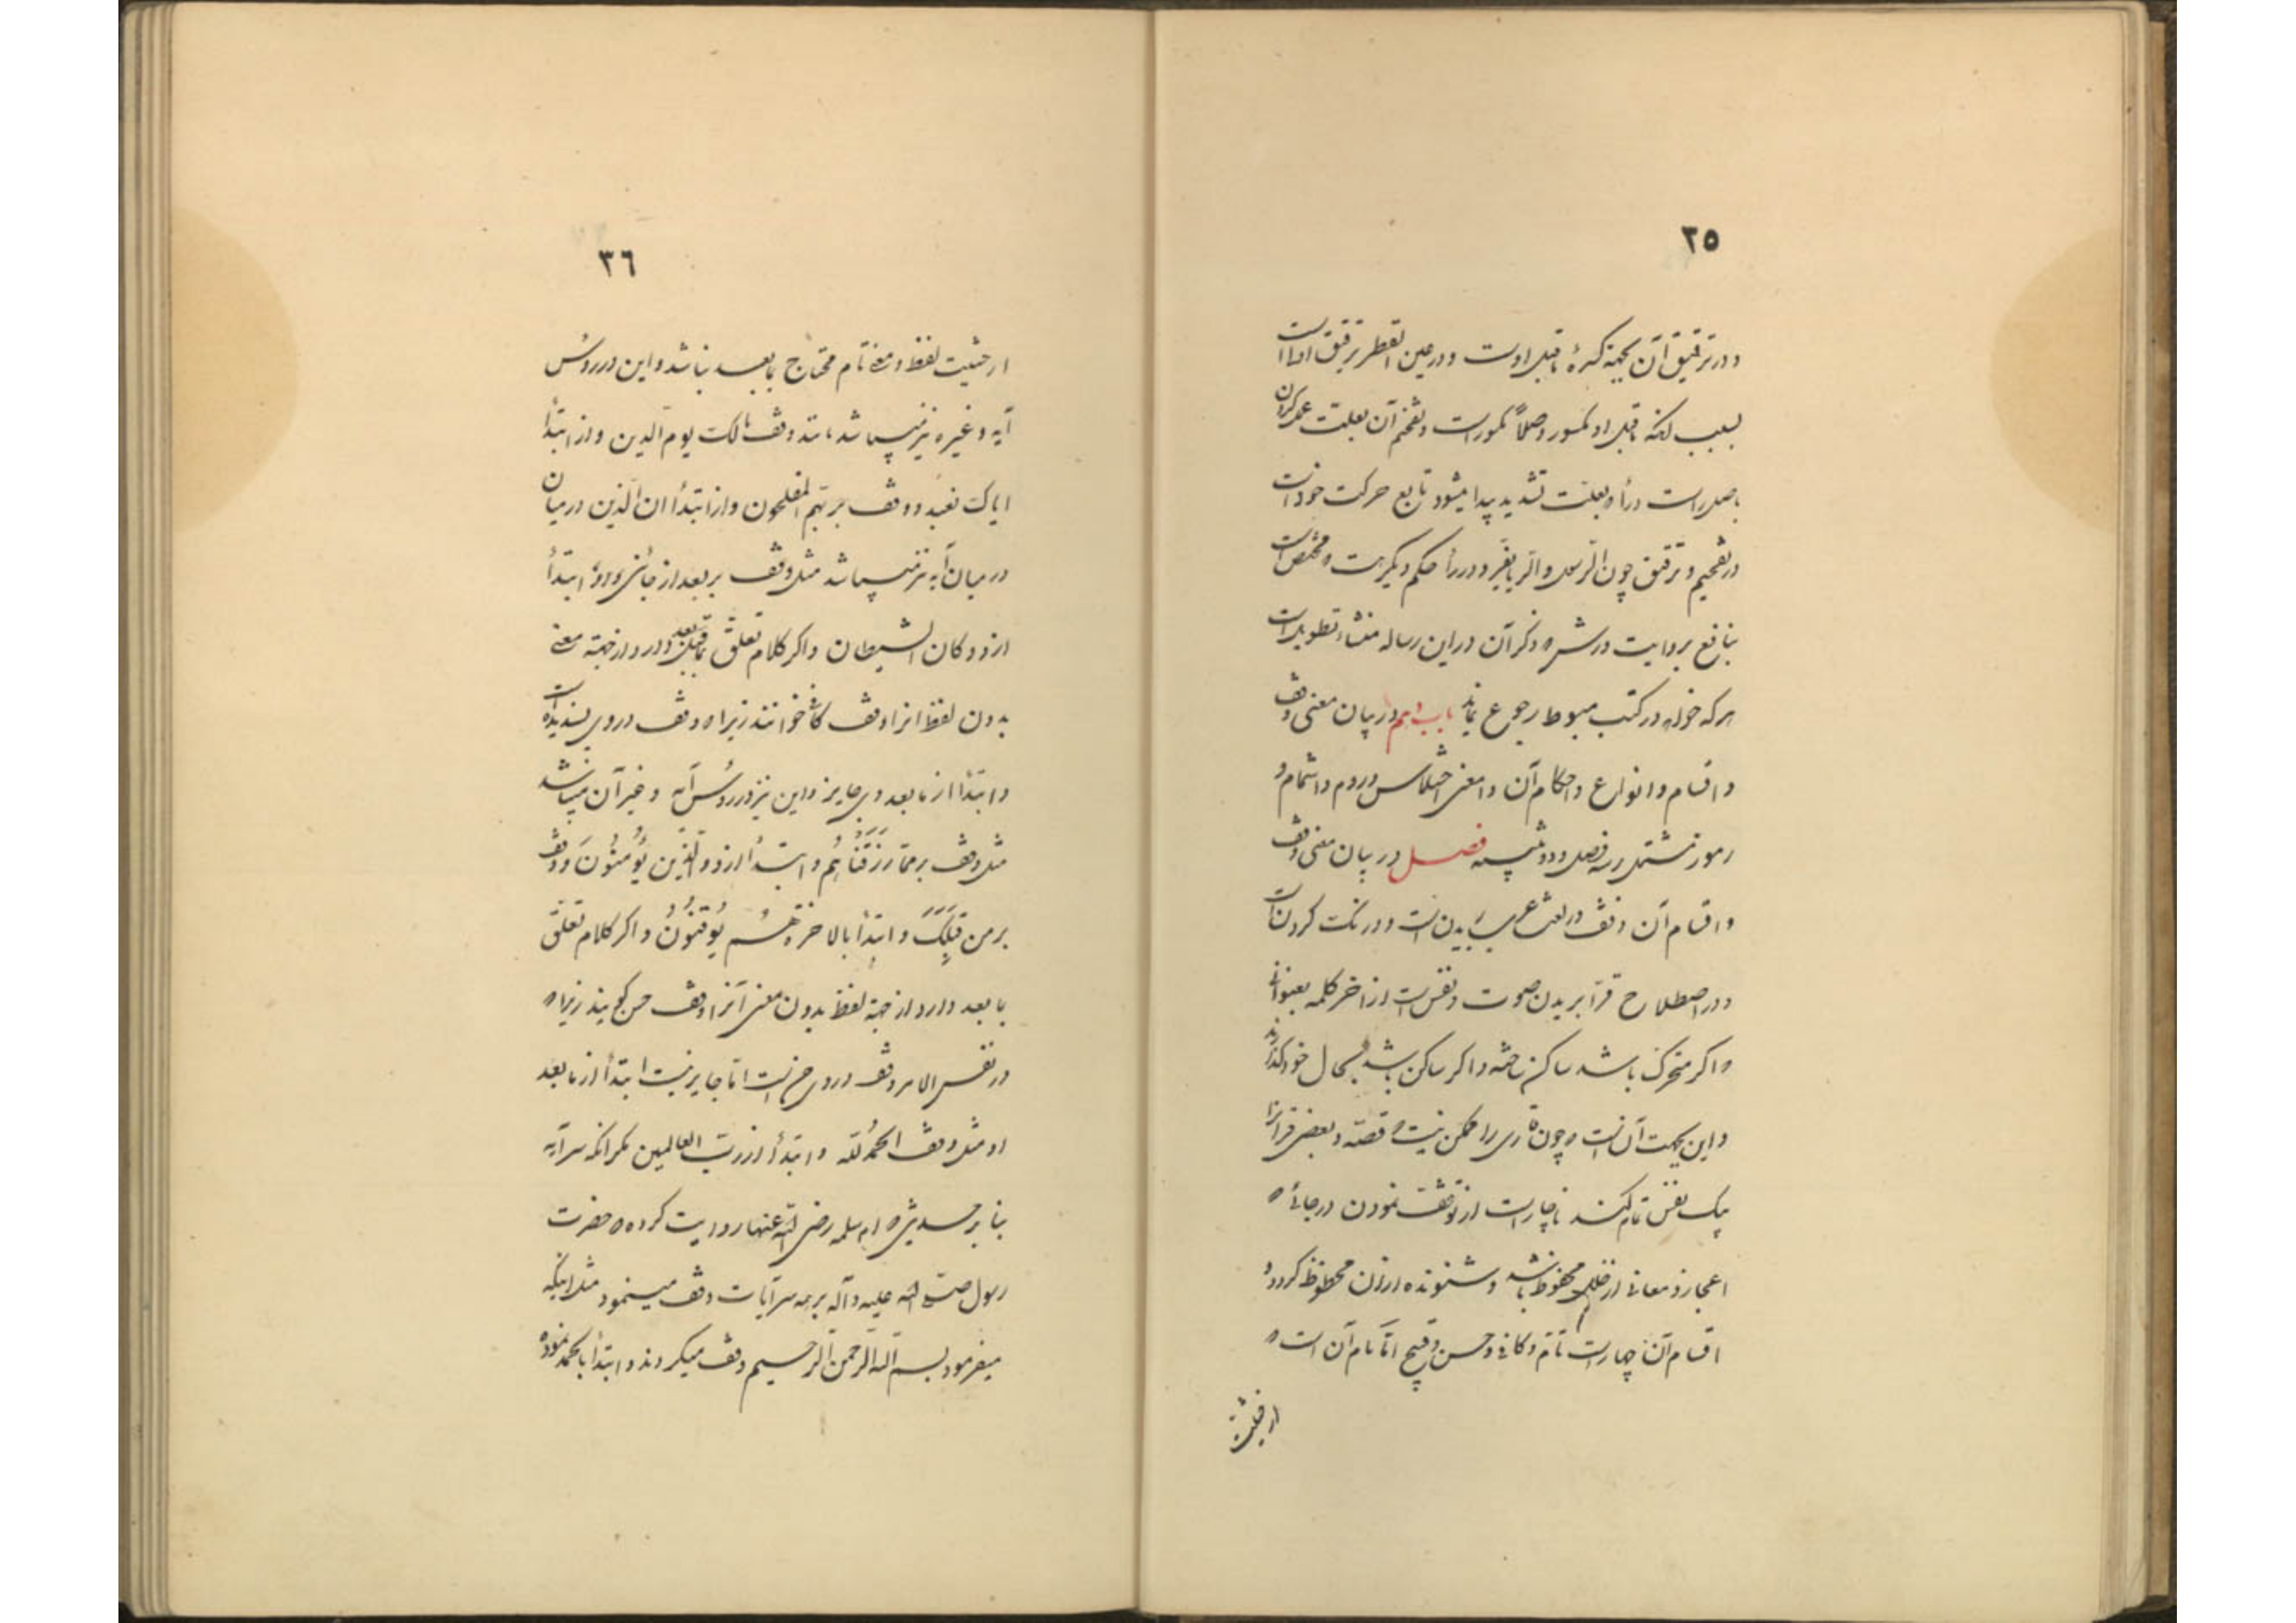 ٣٥
و در ترقیق آن بجهة کسرهٔ ماقبل اوست و در عین القطر ترقیق اولی است
بسبب انکه ماقبل او مکسور و وصلاً مکسور است و تفخیم آن بعلت عمل کردن
باصل راست و راء که بعلت تشدید پیدا میشود تابع حرکت خود است
در تفخیم و ترقیق چون الرسل و الریا بغیر و در راء حکم دیگر هست و مختص است
بنافع بروایت ورش که ذکر آن در این رساله منشاء تطویل است
هر که خواهد در کتب مبسوط رجوع نماید باب دهم در بیان معنی وقف
و اقسام و انواع و احکام آن و معنی اختلاس و روم و اشمام و
رموز مشتمل بر سه فصل و دو تنبیه فصل در بیان معنی وقف
و اقسام آن وقف در لغت عرب بریدن است و درنگ کردن است
و در اصطلاح قرآ بریدن صوت و نفس است از اخر کلمه بعنوانی
و اکر متحرک باشد ساکن ساخته و اکر ساکن باشد بحال خود گذارند
و این بجهت آن است که چون قاری را ممکن نیست که قصّه و بعضی قرآن را
بیک نفس تمام کند ناچار است از توقف نمودن در جائی که
اعجاز و معانی از خلل محفوظ باشد و شنونده از ان محظوظ کردد و
اقسام آن چهار است تامّ و کافی و حسن و قبیح امّا تام آن است که
از حیثیت
٣٦
از حیثیت لفظ و معنی تام محتاج بمابعد نباشد و این در رؤس
آیه و غیره نیز میباشد مانند وقف مالک یوم الدین و از ابتدأ
ایاک نعبد و وقف بر هم المفلحون و از ابتدأ ان الّذین در میان
در میان آیه نیز میباشد مثل وقف بر بعد از جائنی و ابتدأ
از و کان الشیطان و اکر کلام تعلّق بمابعد دارد از جهة معنی
بدون لفظ انرا وقف کافی خوانند زیرا که وقف در وی پسندیده است
و ابتدأ از مابعد وی جایز و این نیز در رؤس آیه و غیر آن میباشد
مثل وقف بر ممّا رزقناهم و ابتدأ از و الّذین یؤمنون و وقف
بر من قبلک و ابتدأ بالاخرة هم یوقنون و اکر کلام تعلّق
بمابعد دارد از جهة لفظ بدون معنی آنرا وقف حسن کویند زیرا که
در نفس الامر وقف در وی حسن است امّا جایز نیست ابتدأ از مابعد
او مثل وقف الحمد للّه و ابتدأ از ربّ العالمین مکر انکه سر آیه
بنابر حدیثی که ام سلمه رضی اللّه عنها روایت کرده که حضرت
رسول صلّی اللّه علیه و آله بر همه سر آیات وقف مینمود مثل اینکه
میفرمود بسم اللّه الرّحمن الرّحیم وقف میکردند و ابتدأ بالحمد نموده